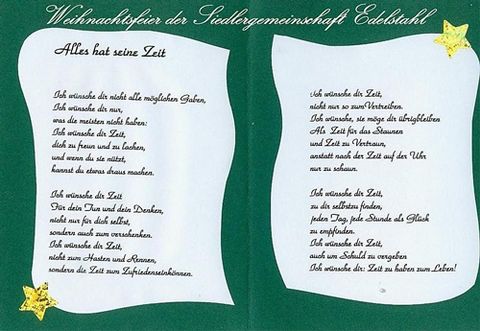 Weihnachtsfeier der Siedlergemeinschaft Edelstahl
Alles hat seine Zeit
Ich wünsche dir nicht alle möglichen Gaben,
Ich wünsche dir nur,
was die meisten nicht haben:
Ich wünsche dir Zeit,
dich zu freun und zu lachen,
und wenn du sie nützt,
kannst du etwas draus machen.
Ich wünsche dir Zeit
Für dein Tun und dein Denken,
nicht nur für dich selbst,
sondern auch zum verschenken.
Ich wünsche dir Zeit,
nicht zum Hasten und Rennen,
sondern die Zeit zum Zufriedenseinkönnen.
Ich wünsche dir Zeit,
nicht nur so zumVertreiben.
Ich wünsche, sie möge dir übrigbleiben
Als Zeit für das Staunen
und Zeit zu Vertraun,
anstatt nach der Zeit auf der Uhr
nur zu schaun.
Ich wünsche dir Zeit,
zu dir selbstzu finden,
jeden Tag, jede Stunde als Glück
zu empfinden.
Ich wünsche dir Zeit,
auch um Schuld zu vergeben
Ich wünsche dir: Zeit zu haben zum Leben!